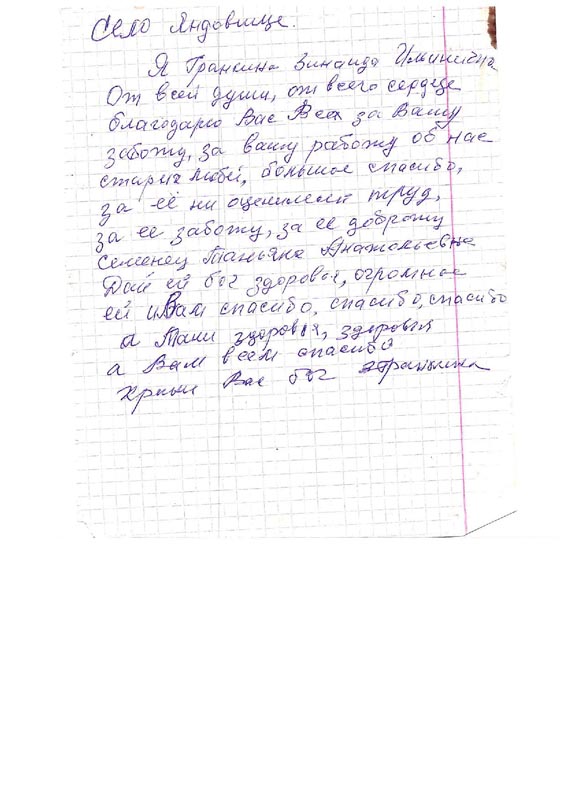 Село Яндовище.
Я Гранкина Зинаида Илинична
От всей души, от всего сердеца
благодарю Вас Всех за Вашу
заботу, за вашу работу об нас
старых людей, большое спасибо,
за её ни оценимой труд,
за её заботу, за её доброту
Семенец Татьяне Анатольевне
Дай ей бог здоровья, огромное
ей и Вам спасибо, спасибо, спасибо
а Тани здоровья, здоровья
а Вам всем спасибо
храни Вас бог